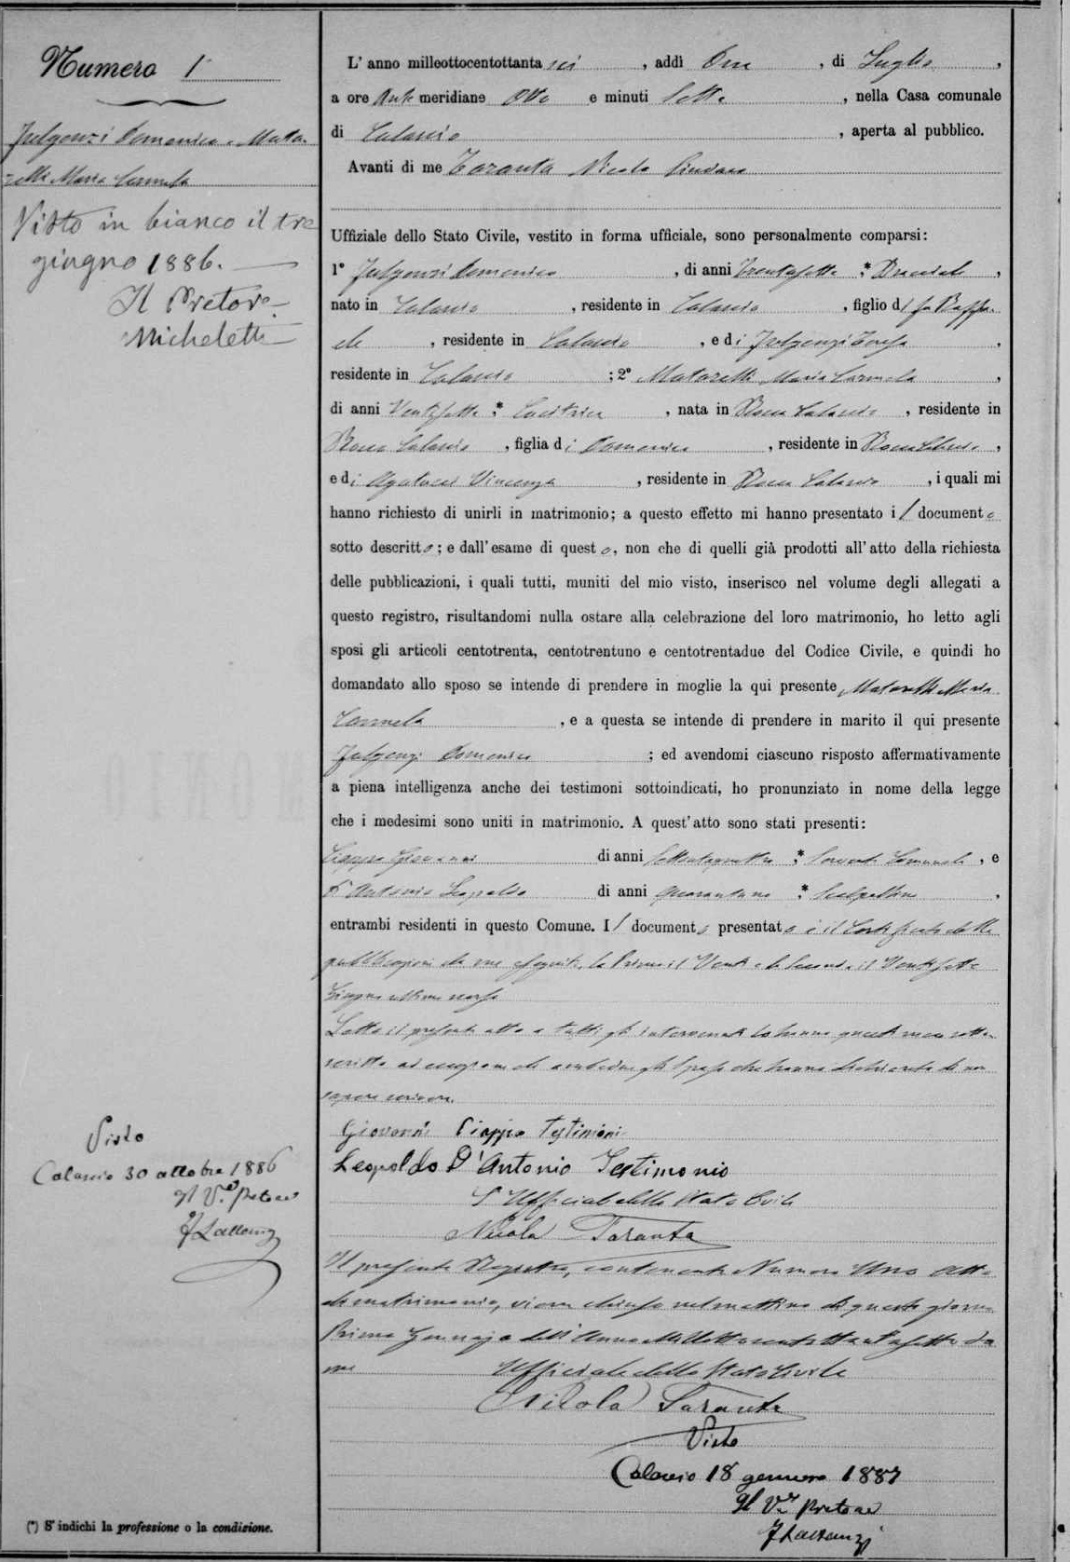 Numero 1
Fulgenzi Domenico e Mata-
relli Maria Carmela
Visto in bianco il tre
giugno 1886.
Il Pretore
Micheletti
L' anno milleottocentottanta sei , addì Due , di Luglio ,
a ore Ante meridiane Otto e minuti Sette , nella Casa comunale
di Calascio , aperta al pubblico.
Avanti di me Taranta Nicola Sindaco
Uffiziale dello Stato Civile, vestito in forma ufficiale, sono personalmente comparsi:
1° Fulgenzi Domenico , di anni trentasette * Bracciale ,
nato in Calascio , residente in Calascio , figlio di fu Raffa-
ele , residente in Calascio , e di Fulgenzi Teresa ,
residente in Calascio ; 2° Matarelli Maria Carmela ,
di anni Ventisette * Cucitrice , nata in Rocca Calascio , residente in
Rocca Calascio , figlia di Domenico , residente in Rocca Calascio ,
e di Agatucci Vincenza , residente in Rocca Calascio , i quali mi
hanno richiesto di unirli in matrimonio; a questo effetto mi hanno presentato i/ documento
sotto descritto ; e dall' esame di questo , non che di quelli già prodotti all' atto della richiesta
delle pubblicazioni, i quali tutti, muniti del mio visto, inserisco nel volume degli allegati a
questo registro, risultandomi nulla ostare alla celebrazione del loro matrimonio, ho letto agli
sposi gli articoli centotrenta, centotrentuno e centotrentadue del Codice Civile, e quindi ho
domandato allo sposo se intende di prendere in moglie la qui presente Matarelli Maria
Carmela , e a questa se intende di prendere in marito il qui presente
Fulgenzi Domenico ; ed avendomi ciascuno risposto affermativamente
a piena intelligenza anche dei testimoni sottoindicati, ho pronunziato in nome della legge
che i medesimi sono uniti in matrimonio. A quest' atto sono stati presenti:
Ciappa Giovanni di anni Settantaquattro * Servente Comunale , e
D'Antonio Leopoldo di anni quarantuno * Scalpellino ,
entrambi residenti in questo Comune. I/ documento presentato è il Certificato delle
pubblicazioni da me eseguite, la Prima il Venti e la seconda il Ventisette
Giugno ultimo scorso
Letto il presente atto a tutti gli intervenuti lo hanno questi meco sotto-
scritto ad eccezione di ambedue gli Sposi che hanno dichiarato di non
sapere scrivere.
Giovanni Ciappa Testimoni
Leopoldo D'Antonio Testimonio
L'Ufficiale dello Stato Civile
Nicola Taranta
Il presente Registro, contenente Numero Uno atto
di matrimonio, viene chiuso nel mattino di questo giorno
Primo Gennajo dell' Anno Milleottocentottantasette da
me Ufficiale dello Stato Civile
Nicola Taranta
Visto
Calascio 18 gennaro 1887
Il V. Pretore
Visto
Calascio 30 ottobre 1886
Il V. Pretore
(*) S' indichi la professione o la condizione.